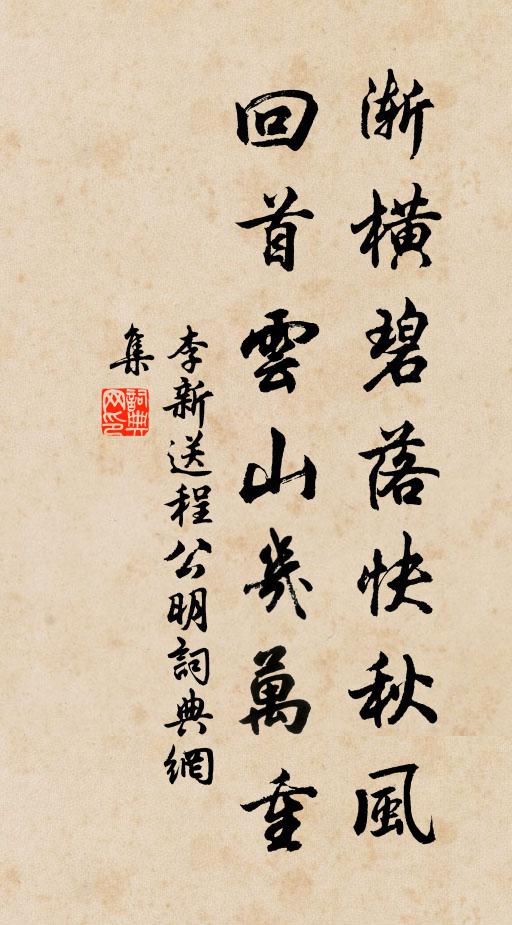 漸橫碧落快秋風
回首雲山幾萬重
李新送程公明詞典網
集
詞典
网印